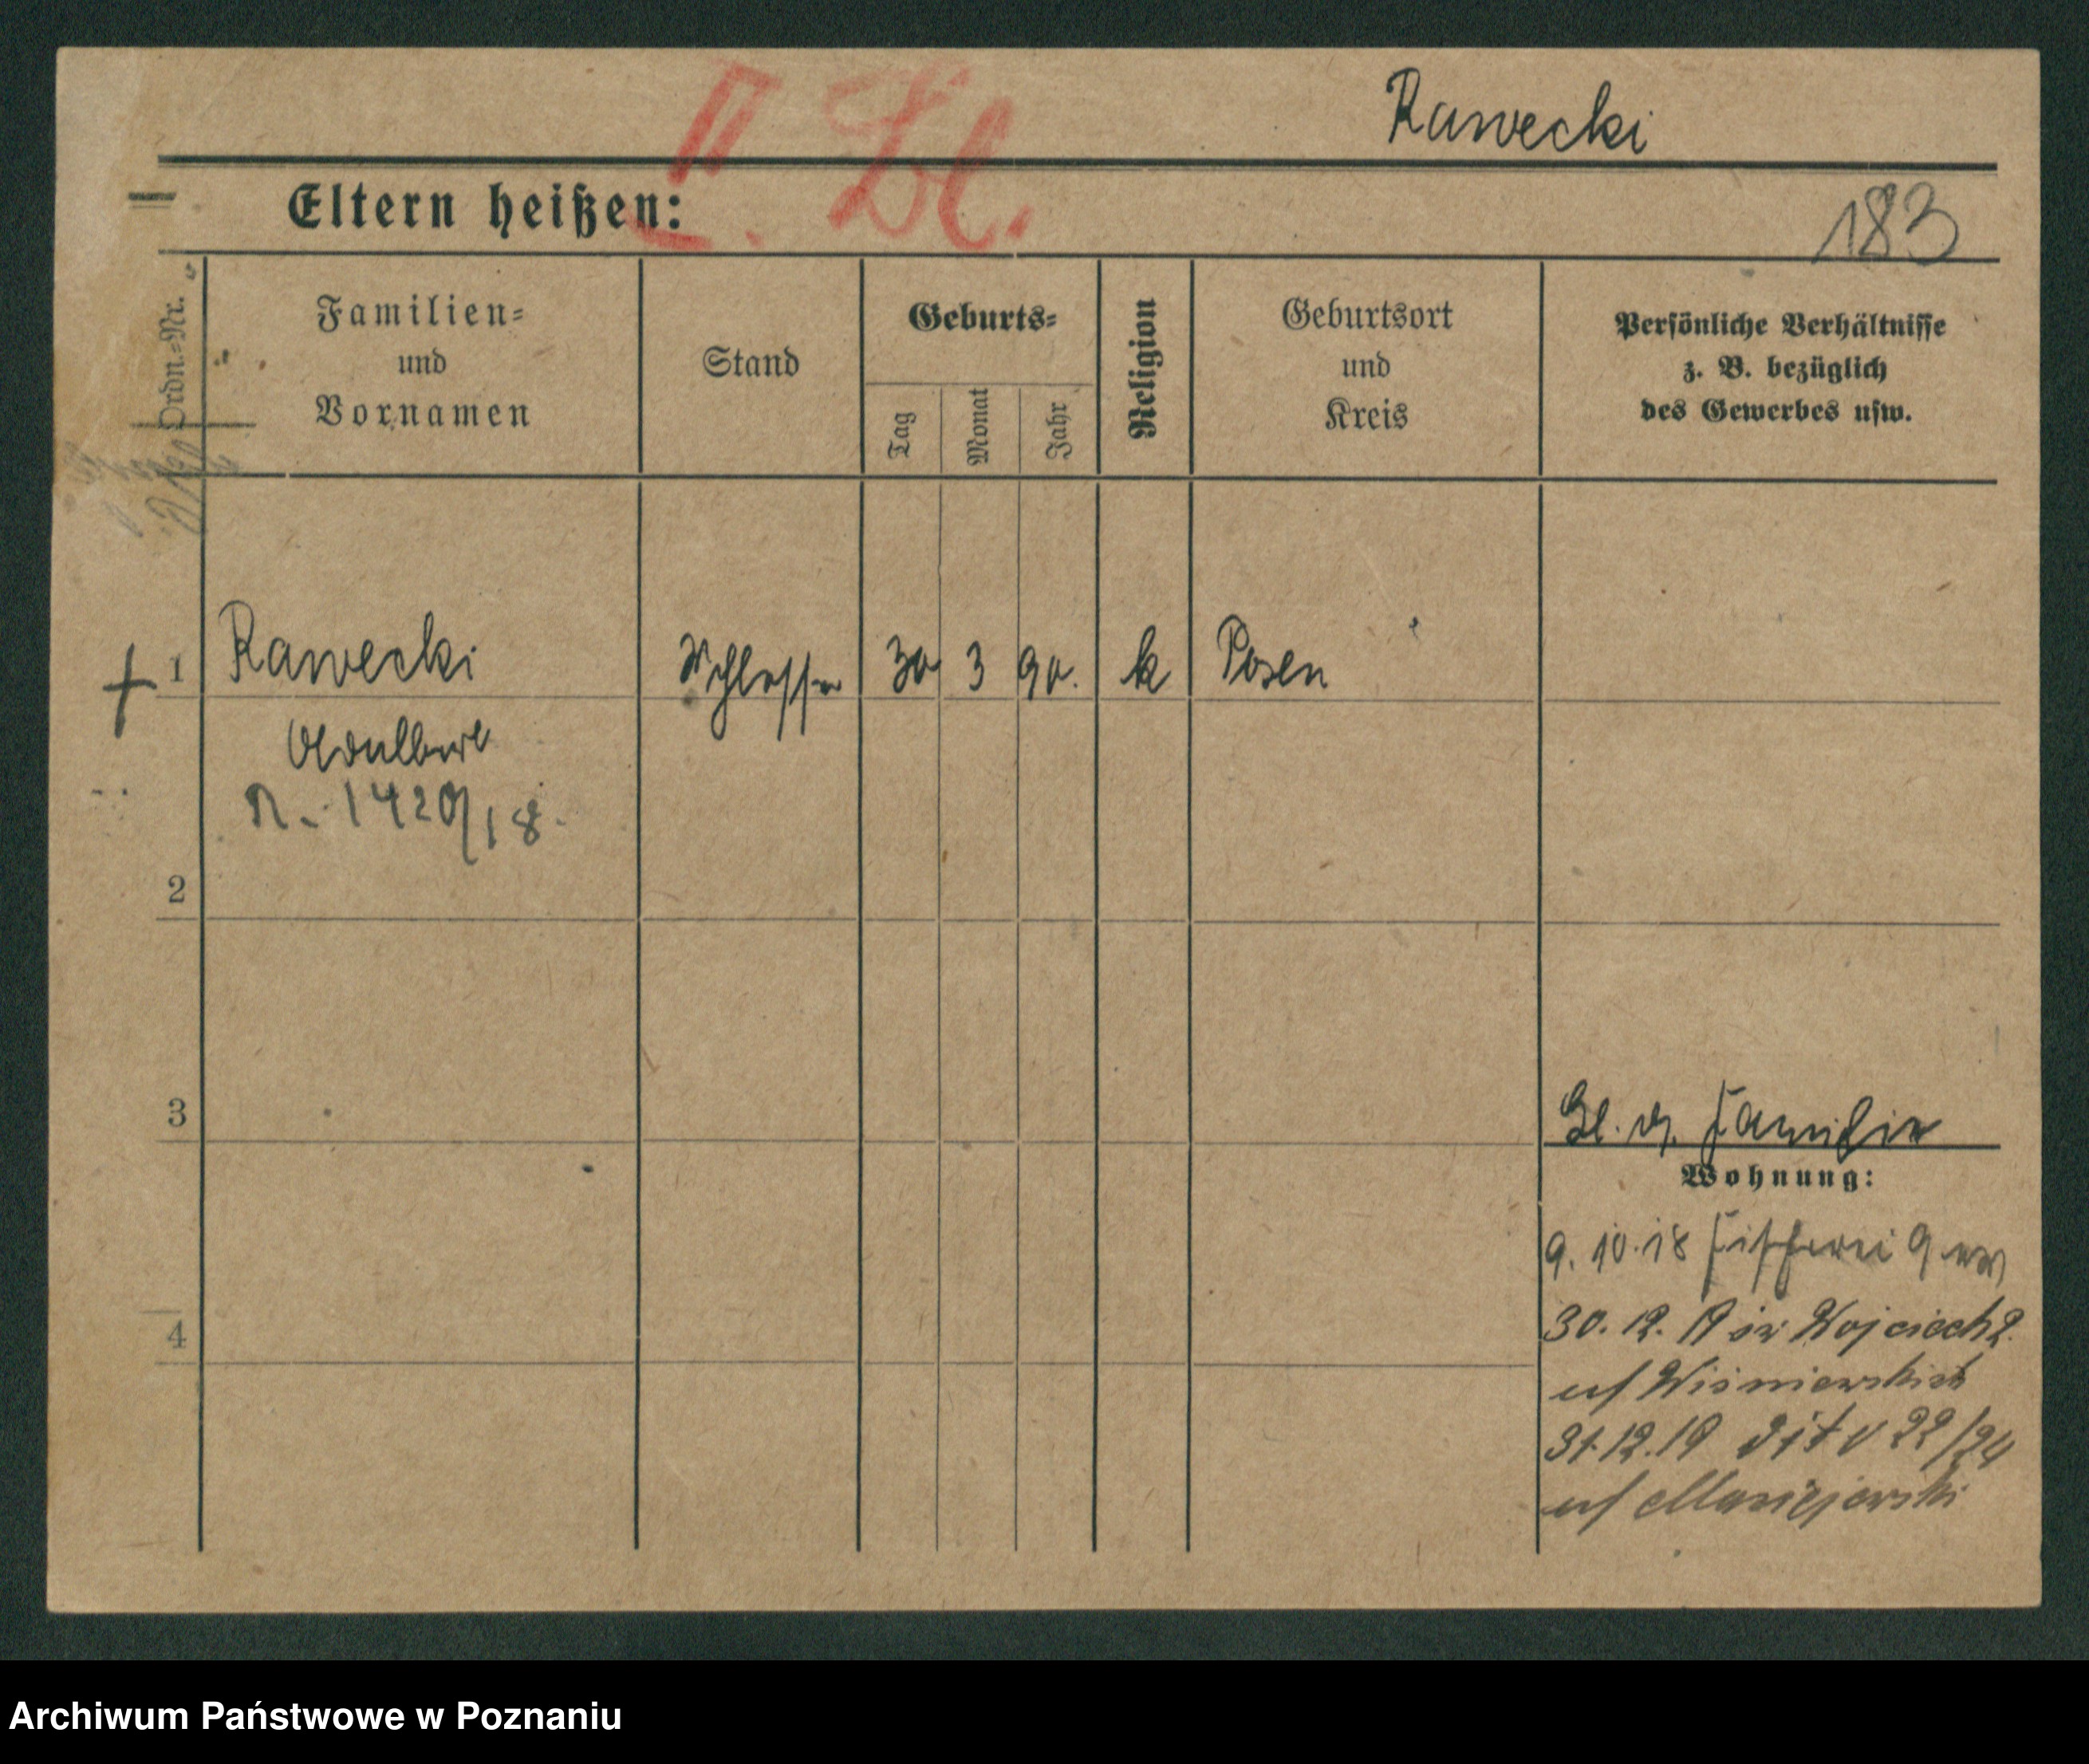 Rawecki
II. Bl.
Eltern heißen:
183
Ordn.=Nr.
Familien=
und
Vornamen
Stand
Geburts=
Tag
Monat
Jahr
Religion
Geburtsort
und
Kreis
Persönliche Verhältnisse
z. B. bezüglich
des Gewerbes usw.
+ 1 Rawecki Schlosser 30 3 90. k Posen
Adalbert
N. 1420/18.
2
3
Bl. d. Familie
Wohnung:
9.10.18 Fischerei 9
30.12.19 Wojciech 2.
u/ Wiśniewskich
31.12.19 22/24
u/ Maciejewski
4
Archiwum Państwowe w Poznaniu